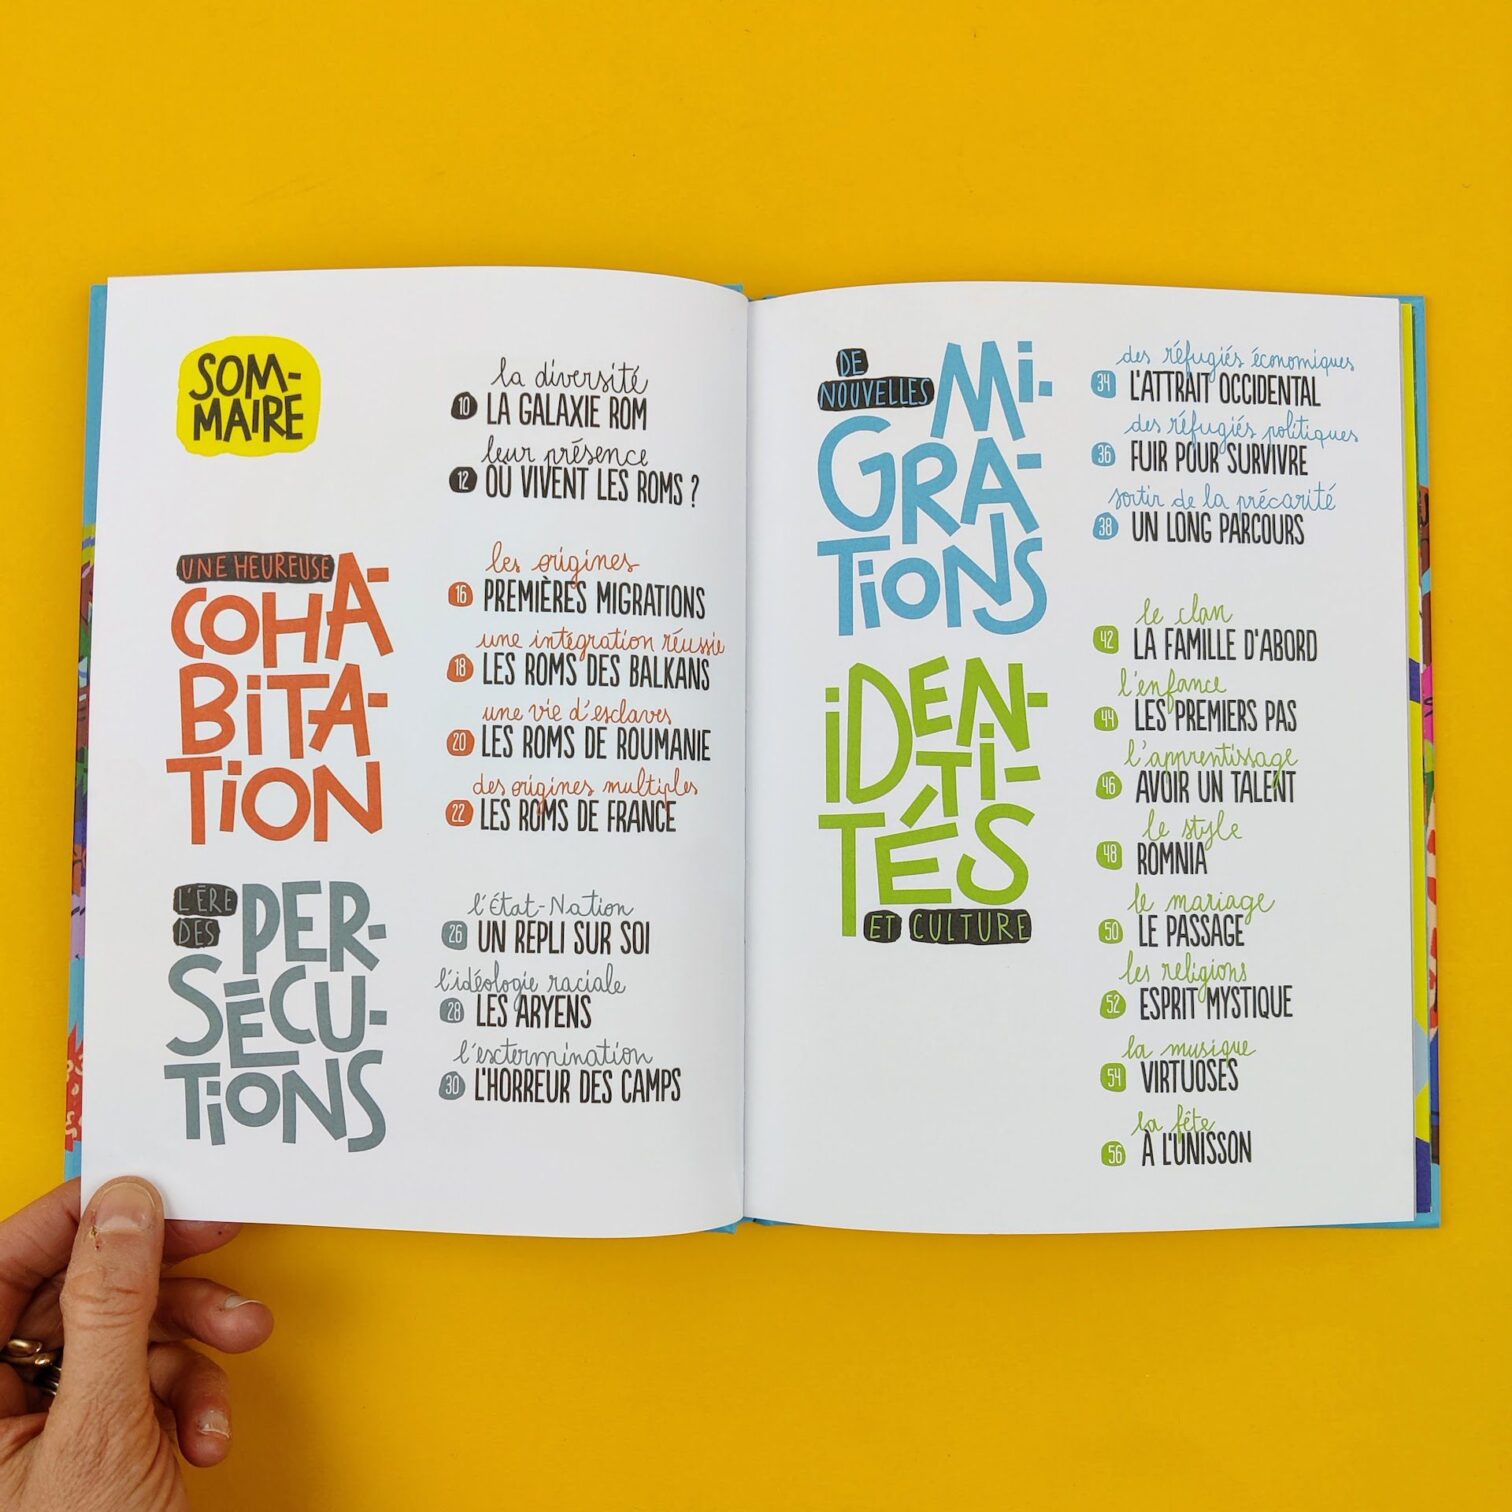 SOM-
MAIRE
la diversité
10 LA GALAXIE ROM
leur présence
12 OÙ VIVENT LES ROMS ?
UNE HEUREUSE
COHA-
BITA-
TION
les origines
16 PREMIÈRES MIGRATIONS
une intégration réussie
18 LES ROMS DES BALKANS
une vie d'esclaves
20 LES ROMS DE ROUMANIE
des origines multiples
22 LES ROMS DE FRANCE
L'ÈRE
DES
PER-
SÉCU-
TIONS
l'État-Nation
26 UN REPLI SUR SOI
l'idéologie raciale
28 LES ARYENS
l'extermination
30 L'HORREUR DES CAMPS
DE
NOUVELLES
MI-
GRA-
TIONS
des réfugiés économiques
34 L'ATTRAIT OCCIDENTAL
des réfugiés politiques
36 FUIR POUR SURVIVRE
sortir de la précarité
38 UN LONG PARCOURS
IDEN-
TI-
TÉS
ET CULTURE
le clan
42 LA FAMILLE D'ABORD
l'enfance
44 LES PREMIERS PAS
l'apprentissage
46 AVOIR UN TALENT
le style
48 ROMNIA
le mariage
50 LE PASSAGE
les religions
52 ESPRIT MYSTIQUE
la musique
54 VIRTUOSES
la fête
56 À L'UNISSON